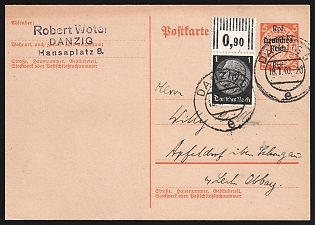 Absender:
Robert Woter
DANZIG
Hansaplatz 8.
Straße, Hausnummer, Gebäudeteil,
Stockwerk oder Postschließfachnummer
Postkarte
0,90
1
Deutsches Reich
5
Rpf
Deutsches
Reich
5
DANZIG
18.1.40.-20
e
DANZIG
e
Herrn
Willy
Apfeldorf über Schongau
a/Lech Obbay.
Straße, Hausnummer, Gebäudeteil,
Stockwerk oder Postschließfachnummer